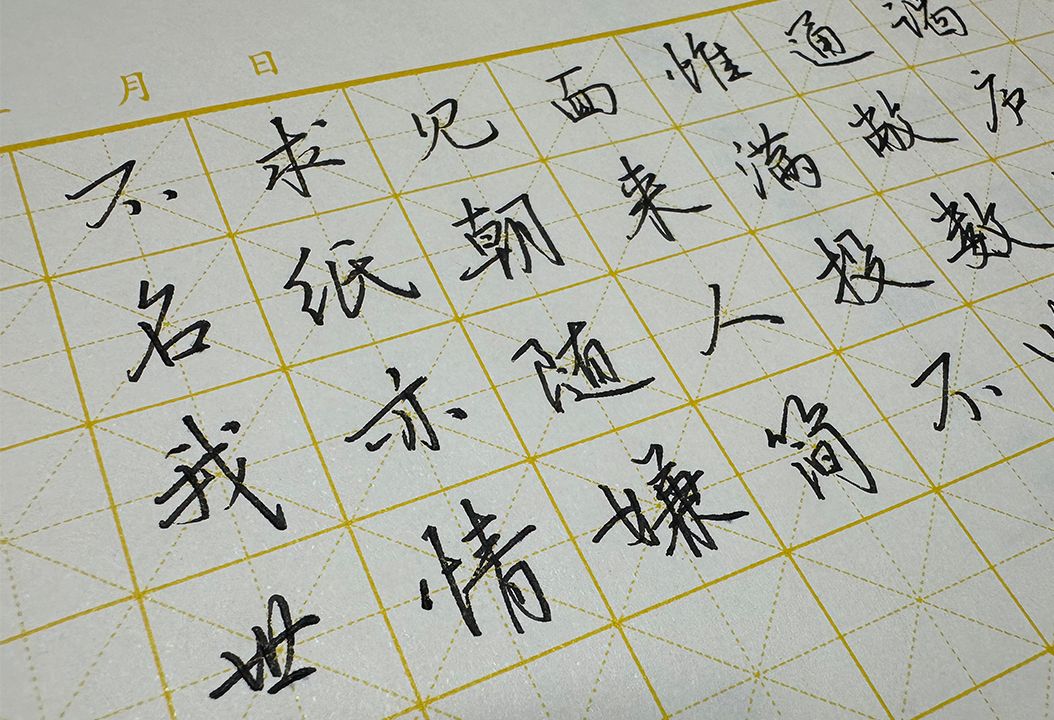 月 日
不求见面惟通谒
名纸朝来满敝庐
我亦随人投数
世情嫌简不